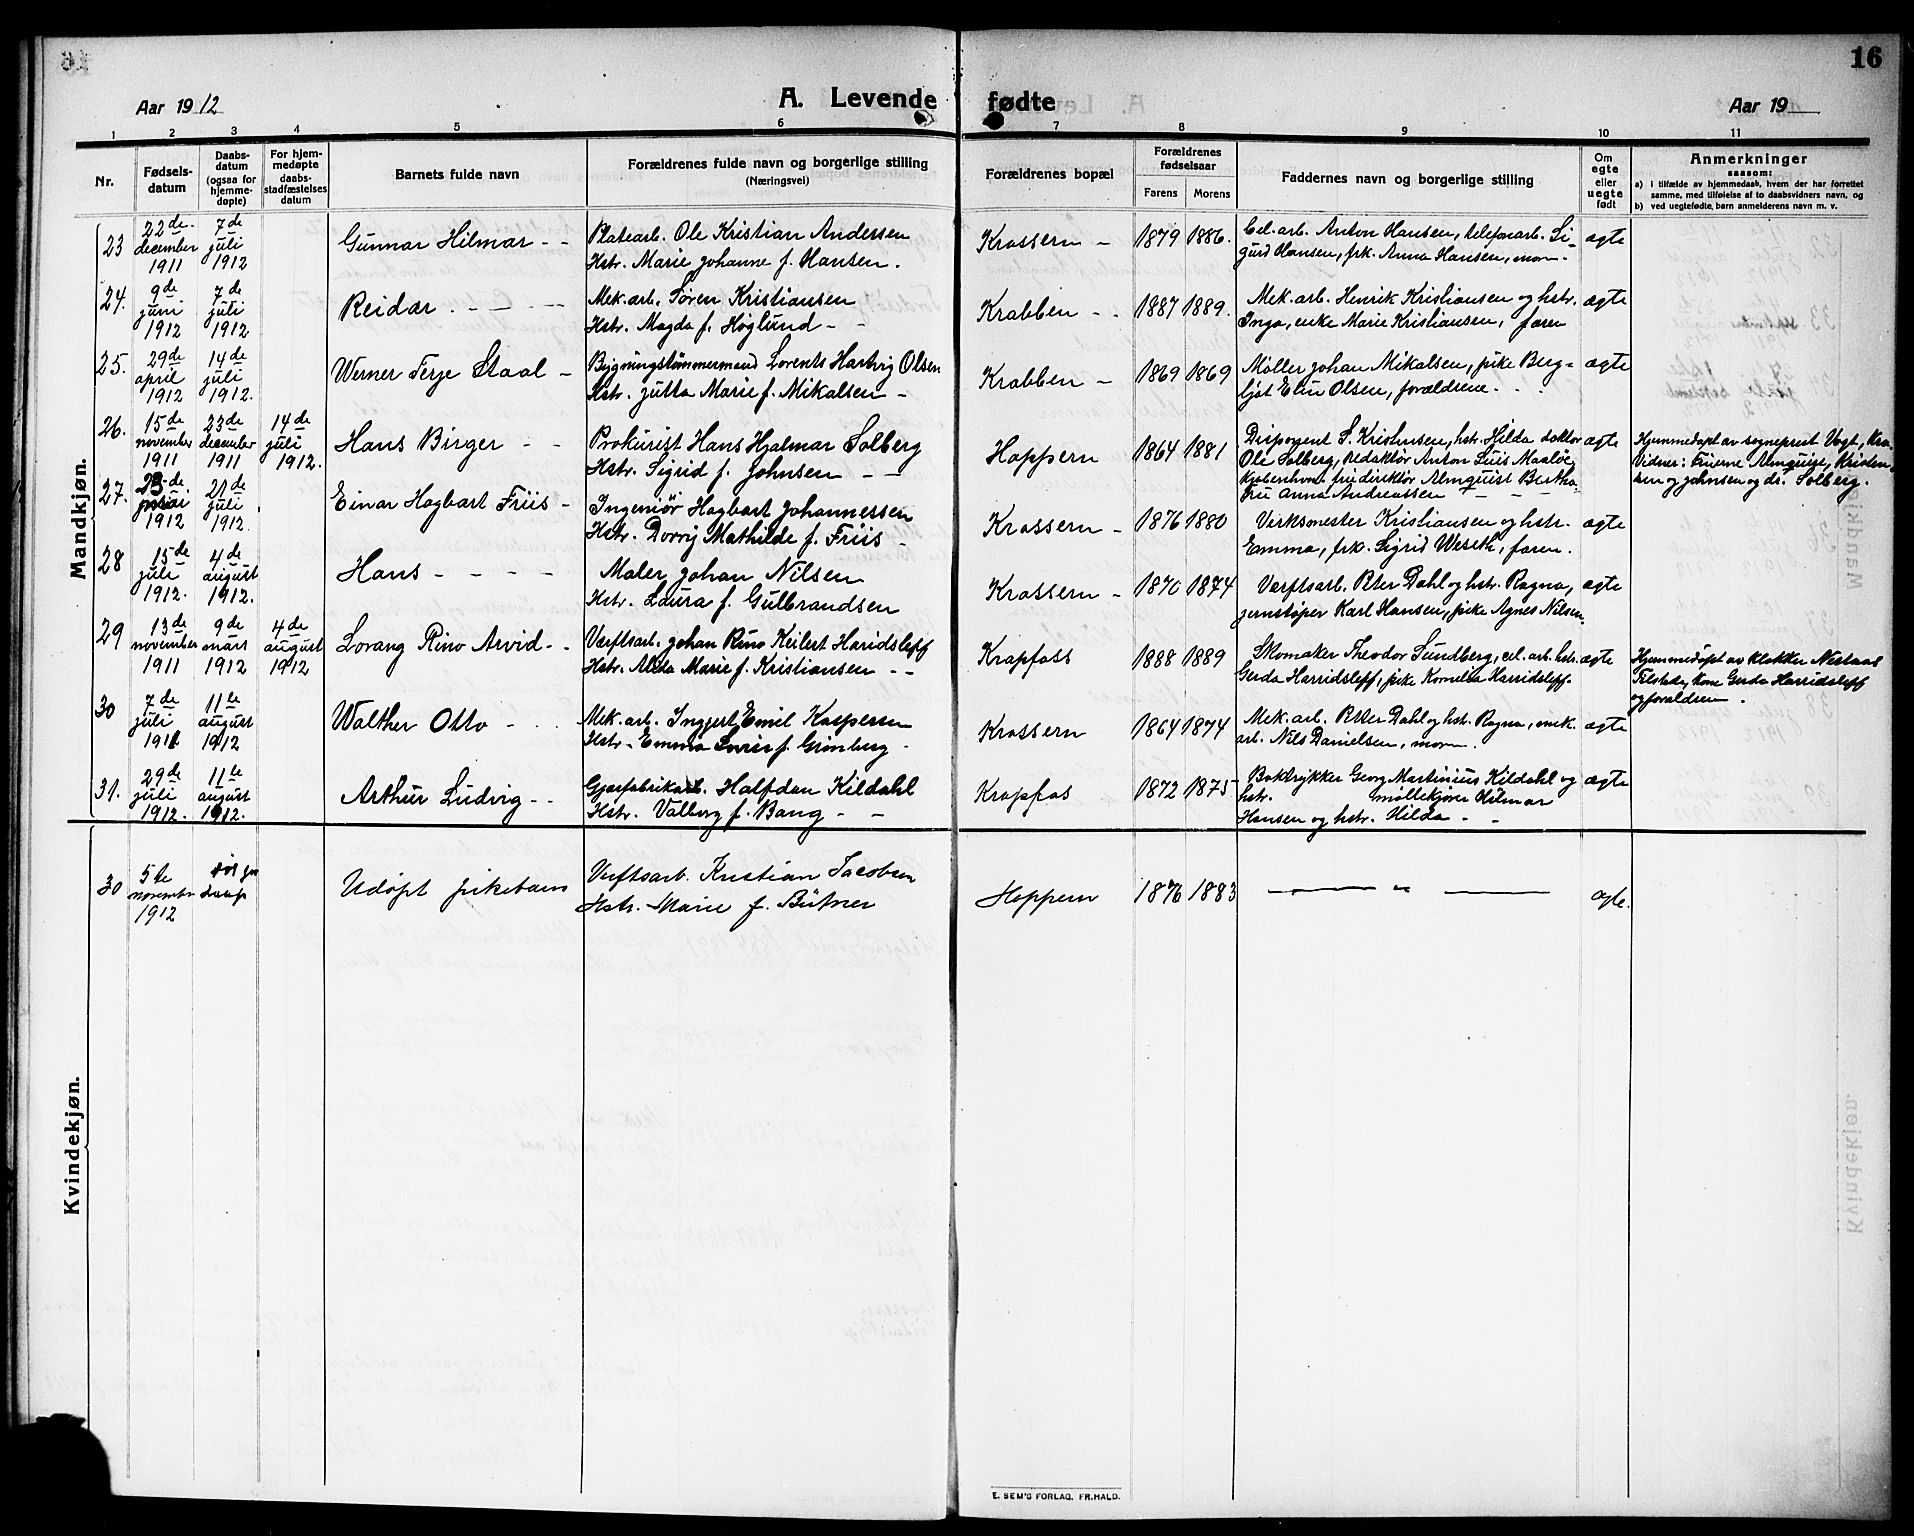 16
Aar 1912
A. Levende fødte
Aar 19
1 2 3 4 5 6 7 8 9 10 11
Nr.
Fødsels-
datum
Daabs-
datum
(ogsaa for
hjemme-
døpte)
For hjem-
medøpte
daabs-
stadfæstelses
datum
Barnets fulde navn
Forældrenes fulde navn og borgerlige stilling
(Næringsvei)
Forældrenes bopæl
Forældrenes
fødselsaar
Farens Morens
Faddernes navn og borgerlige stilling
Om
egte
eller
uegte
født
Anmerkninger
saasom:
a) i tilfælde av hjemmedaab, hvem der har forrettet
samme, med tilføielse af to daabsvidners navn, og
b) ved uegtefødte, barn anmelderens navn m. v.
Mandkjøn.
23
22de
december
1911
7de
juli
1912
Gunnar Hilmar - -
Platearb. Ole Kristian Andersen
Hstr. Marie Johanne f. Hansen.
Krossern -
1879 1886.
Cel. arb. Anton Hansen, telefonarb. Si-
gurd Hansen, frk. Anna Hansen, mor.
ægte
24.
9de
juni
1912
7de
juli
1912
Reidar - - - -
Mek. arb. Søren Kristiansen
Hstr. Magda f. Høglund - -
Krabben - -
1887 1889.
Mek. arb. Henrik Kristiansen og hstr.
Inga, enke Marie Kristiansen, faren
ægte
25.
29de
april
1912
14de
juli
1912.
Werner Terje Staal -
Bygningstømmermand Lorents Hartvig Olsen
Hstr. Jutta Marie f. Mikalsen -
Krabben -
1869 1869
Møller Johan Mikalsen, pike Berg-
ljót Elin Olsen, forældrene - -
ægte
26.
15de
november
1911
23de
december
1911
14de
juli
1912.
Hans Birger - -
Prokurist Hans Hjalmar Solberg
Hstr. Sigrid f. Johnsen - -
Hoppern
1864 1881
Disponent S. Kristensen, hstr. Hilda doktor
Ole Solberg, redaktør Anton Luis Maaløe
Kjøbenhavn, frk direktør Almquist Bertha
Fru Anna Andreassen - - -
ægte
Hjemmedøpt av sogneprest Vogt,
Vidner: Fruerne Almquist, Kristen-
sen og Johnsen og dr. Solberg.
27.
23de
1912
21de
juli
1912.
Einar Hagbart Friis -
Ingeniør Hagbart Johannessen
Hstr. Mathilde f. Friis -
Krossern -
1876 1880
Verksmester Kristiansen og hstr.
Emma, frk. Sigrid Weseth, faren.
ægte
28
15de
juli
1912.
4de
august
1912.
Hans - - - -
Maler Johan Nilsen
Hstr. Laura f. Gulbrandsen
Krossern -
1870 1874
Værftsarb. Peter Dahl og hstr. Ragna,
jernstøper Karl Hansen, pike Agnes Nilsen
ægte
29
13de
november
1911
9de
mars
1912
4de
august
1912
Lorang Rino Arvid - -
Værftsarb. Johan Rino Keilert Haridsleff
Hstr. Alida Marie f. Kristiansen - -
Krapfoss
1888 1889
Skomaker Theodor Sundberg, cel. arb. hstr.
Gerda Harridsleff, pike Kornelia Harridsleff
ægte
Hjemmedøpt av klokker Nestaas
Tilstede, kone Gerda Harridsleff
og forældrene.
30
7de
juli
1911
11te
august
1912
Walther Otto - -
Mek. arb. Ingjert Emil Kaspersen
Hstr. Emma f. Grönberg -
Krossern
1864 1874
Mek. arb. Peter Dahl og hstr. Ragna, mek.
arb. Nils Danielsen, moren.
ægte
31.
29de
juli
1912.
11te
august
1912.
Arthur Ludvig - -
Gjærfabrikarb. Halfdan Kildahl
Hstr. Valborg f. Bang - -
Krapfos
1872 1875
Boktrykker Georg Martinius Kildahl og
hstr. møllekjører Hilmar
Hansen og hstr. Hilda - -
ægte
Kvindekjøn.
30
5te
november
1912
død før
daap
Udøpt pikebarn
Verftsarb. Kristian Jacobsen
Hstr. Marie f. Bütner
Hoppern
1876 1883
— " —
ægte.
E. SEM'S FORLAG. FR.HALD.